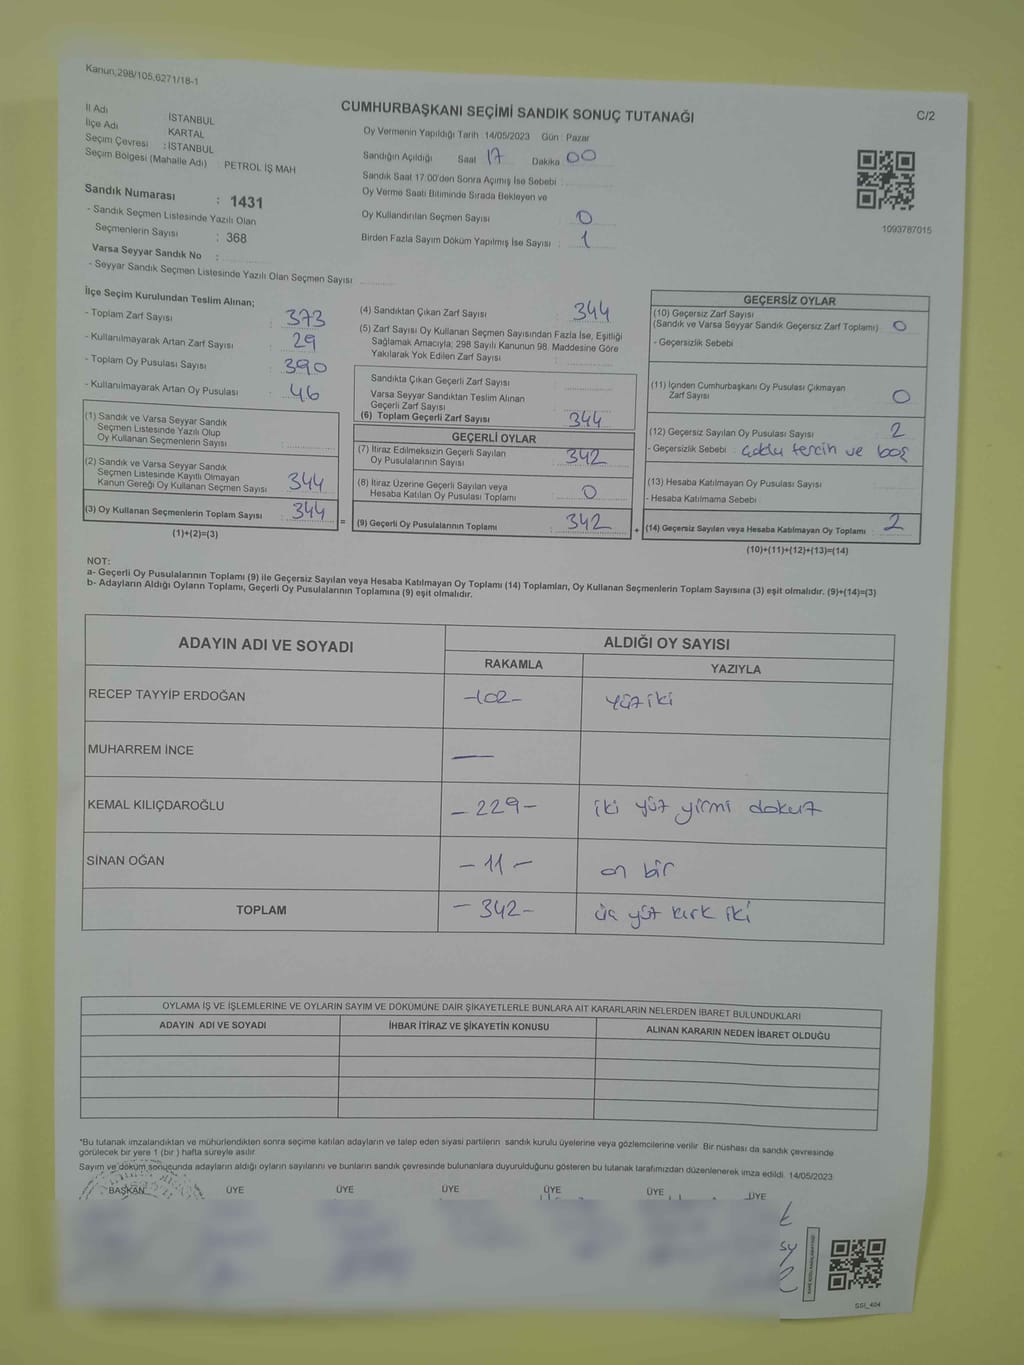 Kanun,298/105,6271/18-1
C/2
CUMHURBAŞKANI SEÇİMİ SANDIK SONUÇ TUTANAĞI
İl Adı İSTANBUL
İlçe Adı KARTAL
Seçim Çevresi : İSTANBUL
Seçim Bölgesi (Mahalle Adı) : PETROL İŞ MAH
Sandık Numarası : 1431
- Sandık Seçmen Listesinde Yazılı Olan
Seçmenlerin Sayısı : 368
Varsa Seyyar Sandık No :
- Seyyar Sandık Seçmen Listesinde Yazılı Olan Seçmen Sayısı
Oy Vermenin Yapıldığı Tarih : 14/05/2023 Gün : Pazar
Sandığın Açıldığı Saat 17 Dakika 00
Sandık Saat 17:00'den Sonra Açımış İse Sebebi :
Oy Verme Saati Bitiminde Sırada Bekleyen ve
Oy Kullandırılan Seçmen Sayısı 0
Birden Fazla Sayım Döküm Yapılmış İse Sayısı : 1
1093787015
İlçe Seçim Kurulundan Teslim Alınan;
- Toplam Zarf Sayısı : 373
- Kullanılmayarak Artan Zarf Sayısı : 29
- Toplam Oy Pusulası Sayısı : 390
- Kullanılmayarak Artan Oy Pusulası : 46
(1) Sandık ve Varsa Seyyar Sandık
Seçmen Listesinde Yazılı Olup
Oy Kullanan Seçmenlerin Sayısı :
(2) Sandık ve Varsa Seyyar Sandık
Seçmen Listesinde Kayıtlı Olmayan
Kanun Gereği Oy Kullanan Seçmen Sayısı 344
(3) Oy Kullanan Seçmenlerin Toplam Sayısı : 344
(1)+(2)=(3)
=
(4) Sandıktan Çıkan Zarf Sayısı : 344
(5) Zarf Sayısı Oy Kullanan Seçmen Sayısından Fazla İse, Eşitliği
Sağlamak Amacıyla; 298 Sayılı Kanunun 98. Maddesine Göre
Yakılarak Yok Edilen Zarf Sayısı :
Sandıkta Çıkan Geçerli Zarf Sayısı
Varsa Seyyar Sandıktan Teslim Alınan
Geçerli Zarf Sayısı
(6) Toplam Geçerli Zarf Sayısı 344
GEÇERLİ OYLAR
(7) İtiraz Edilmeksizin Geçerli Sayılan
Oy Pusulalarının Sayısı : 342
(8) İtiraz Üzerine Geçerli Sayılan veya
Hesaba Katılan Oy Pusulası Toplamı : 0
(9) Geçerli Oy Pusulalarının Toplamı : 342
+
GEÇERSİZ OYLAR
(10) Geçersiz Zarf Sayısı
(Sandık ve Varsa Seyyar Sandık Geçersiz Zarf Toplamı) : 0
- Geçersizlik Sebebi
(11) İçinden Cumhurbaşkanı Oy Pusulası Çıkmayan
Zarf Sayısı 0
(12) Geçersiz Sayılan Oy Pusulası Sayısı : 2
- Geçersizlik Sebebi : çoklu tercih ve boş
(13) Hesaba Katılmayan Oy Pusulası Sayısı :
- Hesaba Katılmama Sebebi
(14) Geçersiz Sayılan veya Hesaba Katılmayan Oy Toplamı : 2
(10)+(11)+(12)+(13)=(14)
NOT:
a- Geçerli Oy Pusulalarının Toplamı (9) ile Geçersiz Sayılan veya Hesaba Katılmayan Oy Toplamı (14) Toplamları, Oy Kullanan Seçmenlerin Toplam Sayısına (3) eşit olmalıdır. (9)+(14)=(3)
b- Adayların Aldığı Oyların Toplamı, Geçerli Oy Pusulalarının Toplamına (9) eşit olmalıdır.
ADAYIN ADI VE SOYADI
ALDIĞI OY SAYISI
RAKAMLA YAZIYLA
RECEP TAYYİP ERDOĞAN -102- yüz iki
MUHARREM İNCE —
KEMAL KILIÇDAROĞLU - 229 - iki yüz yirmi dokuz
SİNAN OĞAN - 11 - on bir
TOPLAM - 342 - üç yüz kırk iki
OYLAMA İŞ VE İŞLEMLERİNE VE OYLARIN SAYIM VE DÖKÜMÜNE DAİR ŞİKAYETLERLE BUNLARA AİT KARARLARIN NELERDEN İBARET BULUNDUKLARI
ADAYIN ADI VE SOYADI İHBAR İTİRAZ VE ŞİKAYETİN KONUSU ALINAN KARARIN NEDEN İBARET OLDUĞU
*Bu tutanak imzalandıktan ve mühürlendikten sonra seçime katılan adayların ve talep eden siyasi partilerin sandık kurulu üyelerine veya gözlemcilerine verilir. Bir nüshası da sandık çevresinde
görülecek bir yere 1 (bir ) hafta süreyle asılır.
Sayım ve döküm sonucunda adayların aldığı oyların sayılarını ve bunların sandık çevresinde bulunanlara duyurulduğunu gösteren bu tutanak tarafımızdan düzenlenerek imza edildi. 14/05/2023
BAŞKAN ÜYE ÜYE ÜYE ÜYE ÜYE ÜYE
SSİ_404